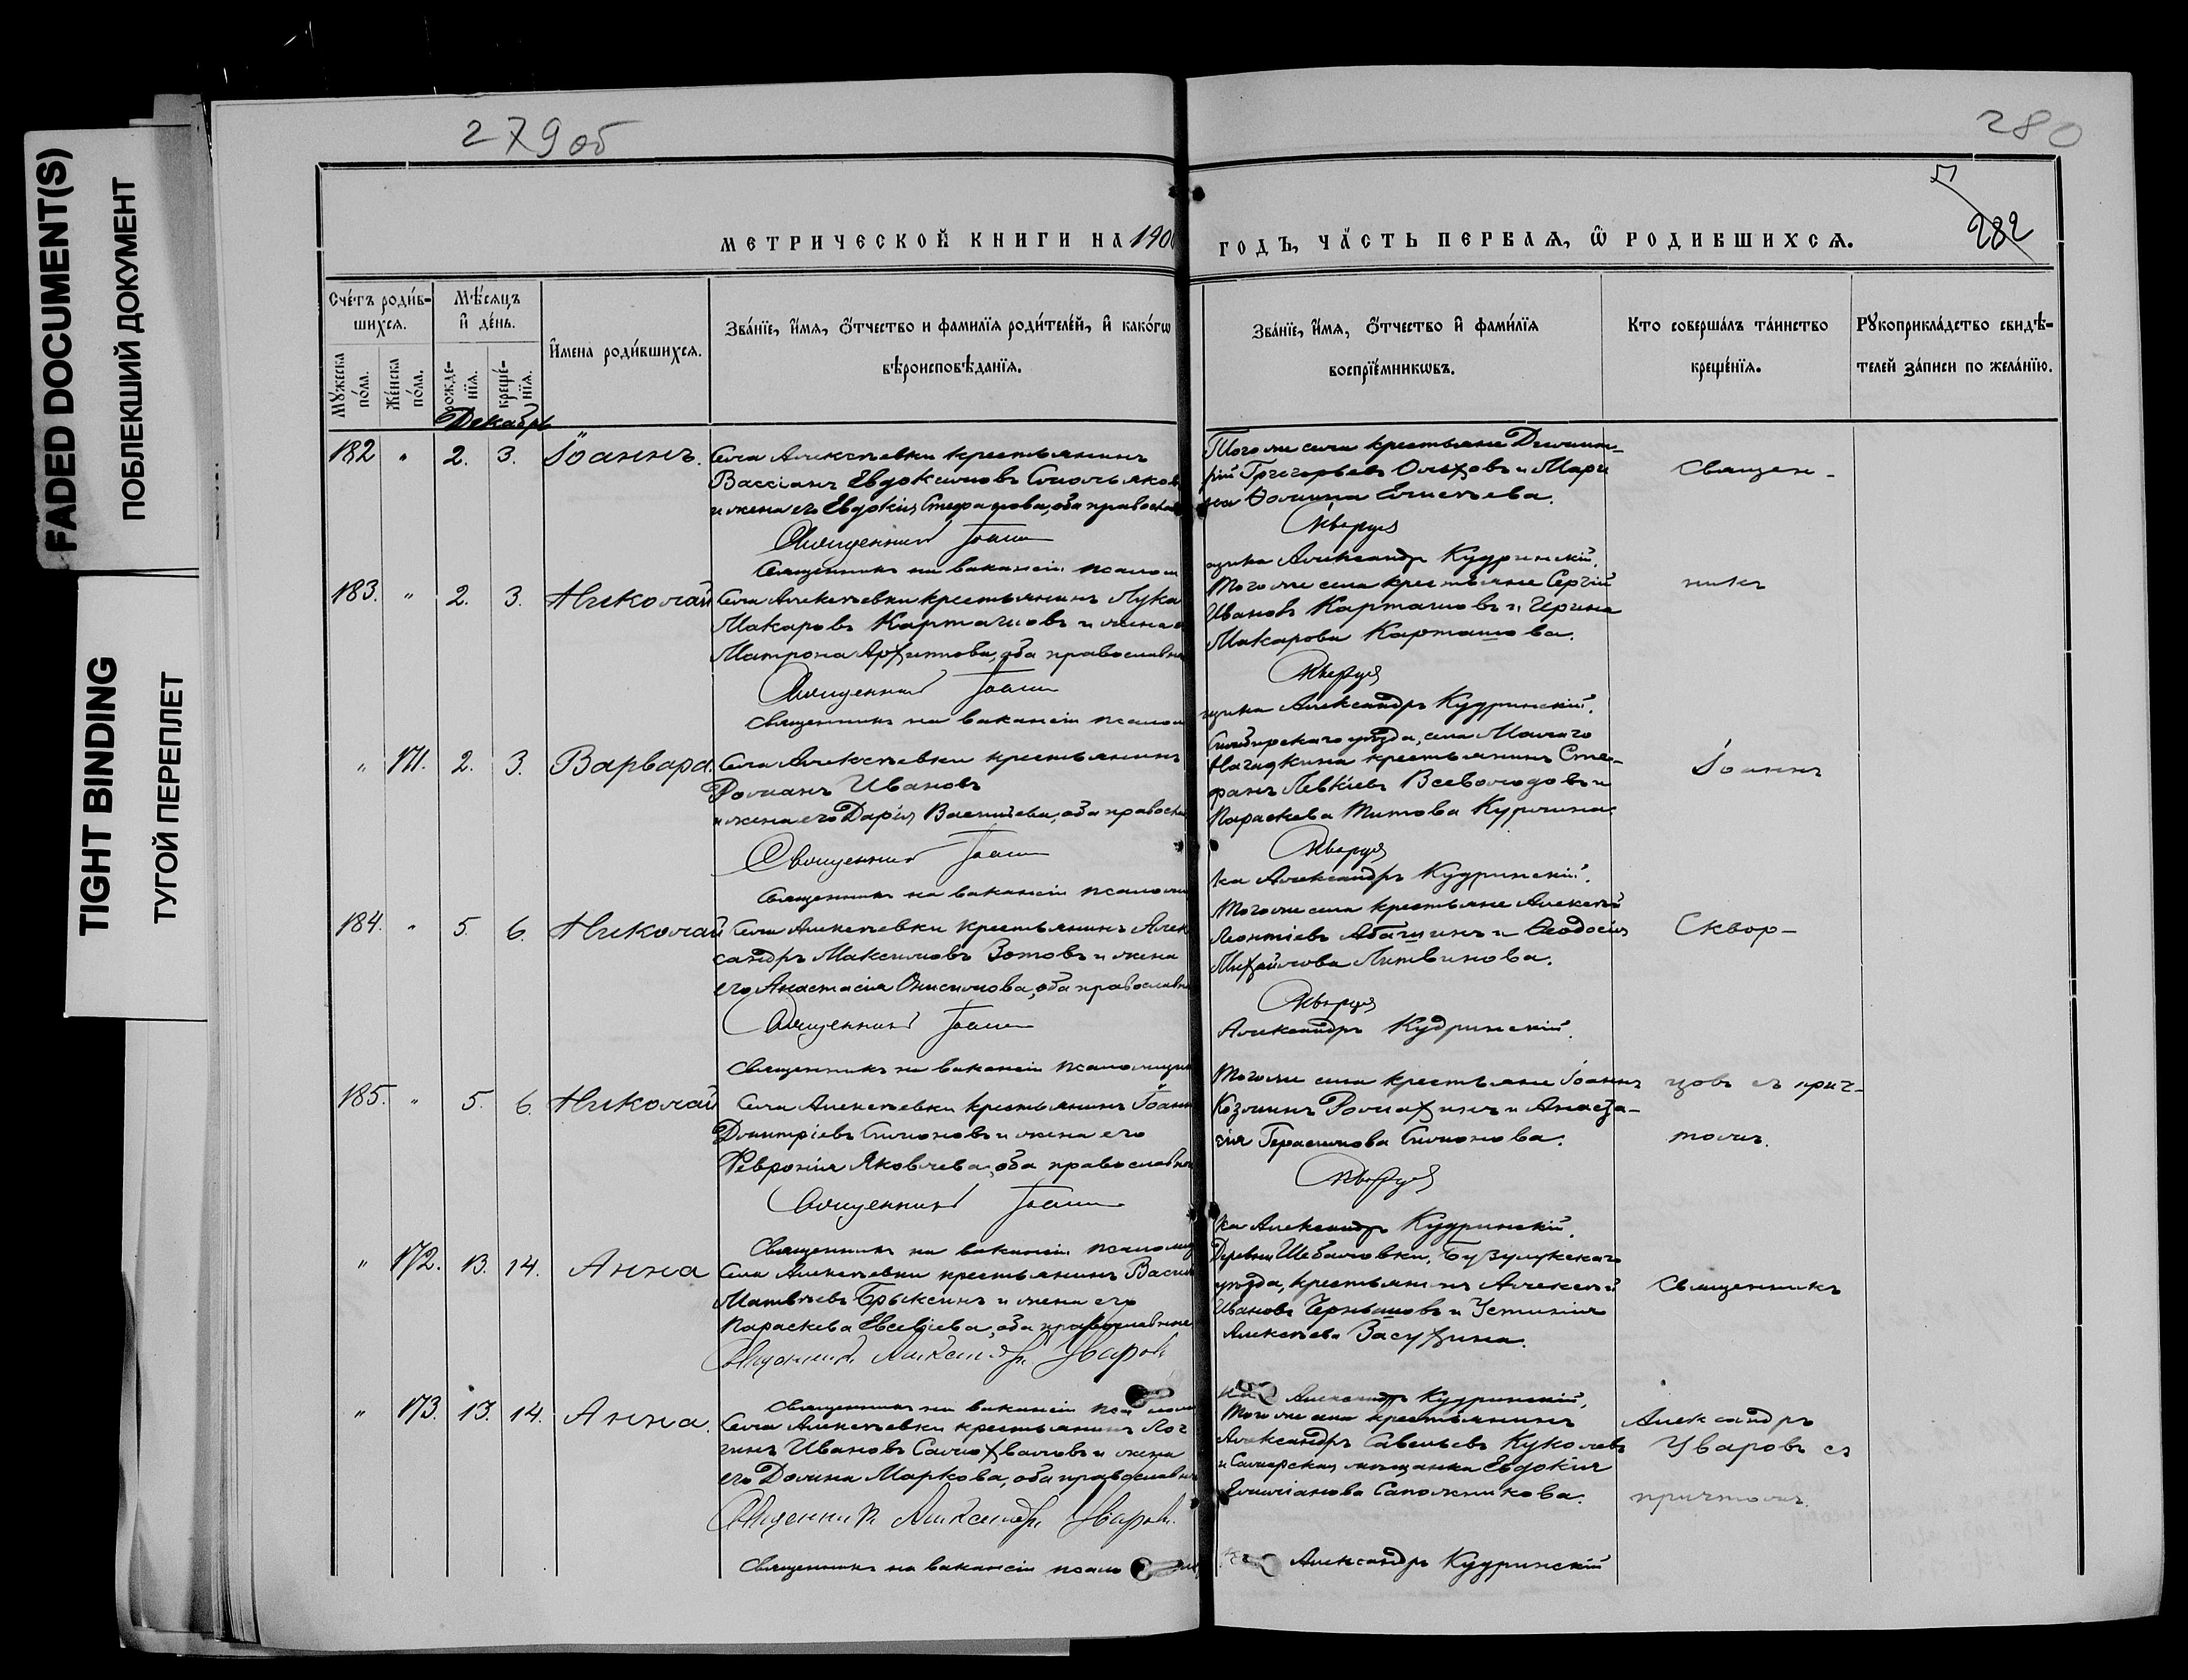 FADED DOCUMENT(S)
ПОБЛЕКШИЙ ДОКУМЕНТ
TIGHT BINDING
ТУГОЙ ПЕРЕПЛЕТ
279об
280
282
МЕТРИЧЕСКОЙ КНИГИ НА 190
ГОДЪ, ЧАСТЬ ПЕРВАЯ, Ѿ РОДИВШИХСЯ.
Счетъ родив-
шихся.
Мужеска
пола.
Женска
пола.
Мѣсяцъ
и день.
рожде-
нія.
креще-
нія.
Имена родившихся.
Званіе, имя, отчество и фамилія родителей, и какогѡ
вѣроисповѣданія.
Званіе, имя, отчество и фамилія
воспріемникѡвъ.
Кто совершалъ таинство
крещенія.
Рукоприкладство свидѣ-
телей записи по желанію.
Декабрь
182 " 2. 3. Іоаннъ.
Села Алексѣевки крестьянинъ
Вассіанъ Евдокимовъ
и жена его Евдокія Стефанова, оба правосла
Священникъ Іоанн
Священникъ на вакансіи псалом
Того же села крестьяне Димит-
рій Григорьевъ Ольховъ и Мари
на Ѳомина Елисѣева.
Скворцов
щика Александръ Кудринскій.
Священ-
183. " 2. 3. Николай
Села Алексѣевки крестьянинъ Лука
Макаровъ Карташовъ и жена
Матрона Архипова, оба православн
Священникъ Іоанн
Священникъ на вакансіи псалом
Того же села крестьяне Сергій
Ивановъ Карташовъ и Ирина
Макарова Карташова.
Скворцов
щика Александръ Кудринскій.
никъ
" 171. 2. 3. Варвара.
Села Алексѣевки крестьянинъ
Романъ Ивановъ
и жена его Дарія Васильева, оба правосла
Священникъ Іоанн
Священникъ на вакансіи псаломщи
Симбирскаго уѣзда, села Малаго
Нагаткина крестьянинъ Сте-
фанъ Левкіевъ Всеволодовъ и
Параскева Титова Купчина.
Скворцов
ка Александръ Кудринскій.
Іоаннъ
184. " 5. 6. Николай
Села Алексѣевки крестьянинъ Алек
сандръ Максимовъ Зотовъ и жена
его Анастасія Онисимова, оба православн
Священникъ Іоанн
Священникъ на вакансіи псаломщик
Того же села крестьяне Алексѣй
Леонтіевъ Абашинъ и Ѳеодосія
Михайлова Литвинова.
Скворцов
Александръ Кудринскій.
Сквор-
185. " 5. 6. Николай
Села Алексѣевки крестьянинъ Іоанн
Димитріевъ Симоновъ и жена его
Феврокія Яковлева, оба православн
Священникъ Іоанн
Священникъ на вакансіи псаломщи
Того же села крестьяне Іоаннъ
Козминъ Ромахинъ и Анаста-
сія Герасимова Симонова.
Скворцов
ка Александръ Кудринскій.
цовъ съ прич-
томъ.
" 172. 13. 14. Анна
Села Алексѣевки крестьянинъ Васил
Матвѣевъ Брыксинъ и жена его
Параскева Евсевіева, оба православные
Священникъ Александръ Уваровъ
Священникъ на вакансіи
Деревни Шебаловки, Бузулукскаго
уѣзда, крестьянинъ Алексѣй
Ивановъ Чернышовъ и Устинія
Алексѣева Засухина.
Александръ Кудринскій,
Священникъ
" 173. 13. 14. Анна.
Села Алексѣевки крестьянинъ Лог
гинъ Ивановъ Самохваловъ и жена
его Домна Маркова, оба православн
Священникъ Александръ Уваровъ.
Священникъ на вакансіи псало
Того же села крестьянинъ
Александръ Савельевъ Куколевъ
и Самарская мѣщанка Евдокія
Емиліанова Сапожникова.
Александръ Кудринскій
Александръ
Уваровъ съ
причтомъ.